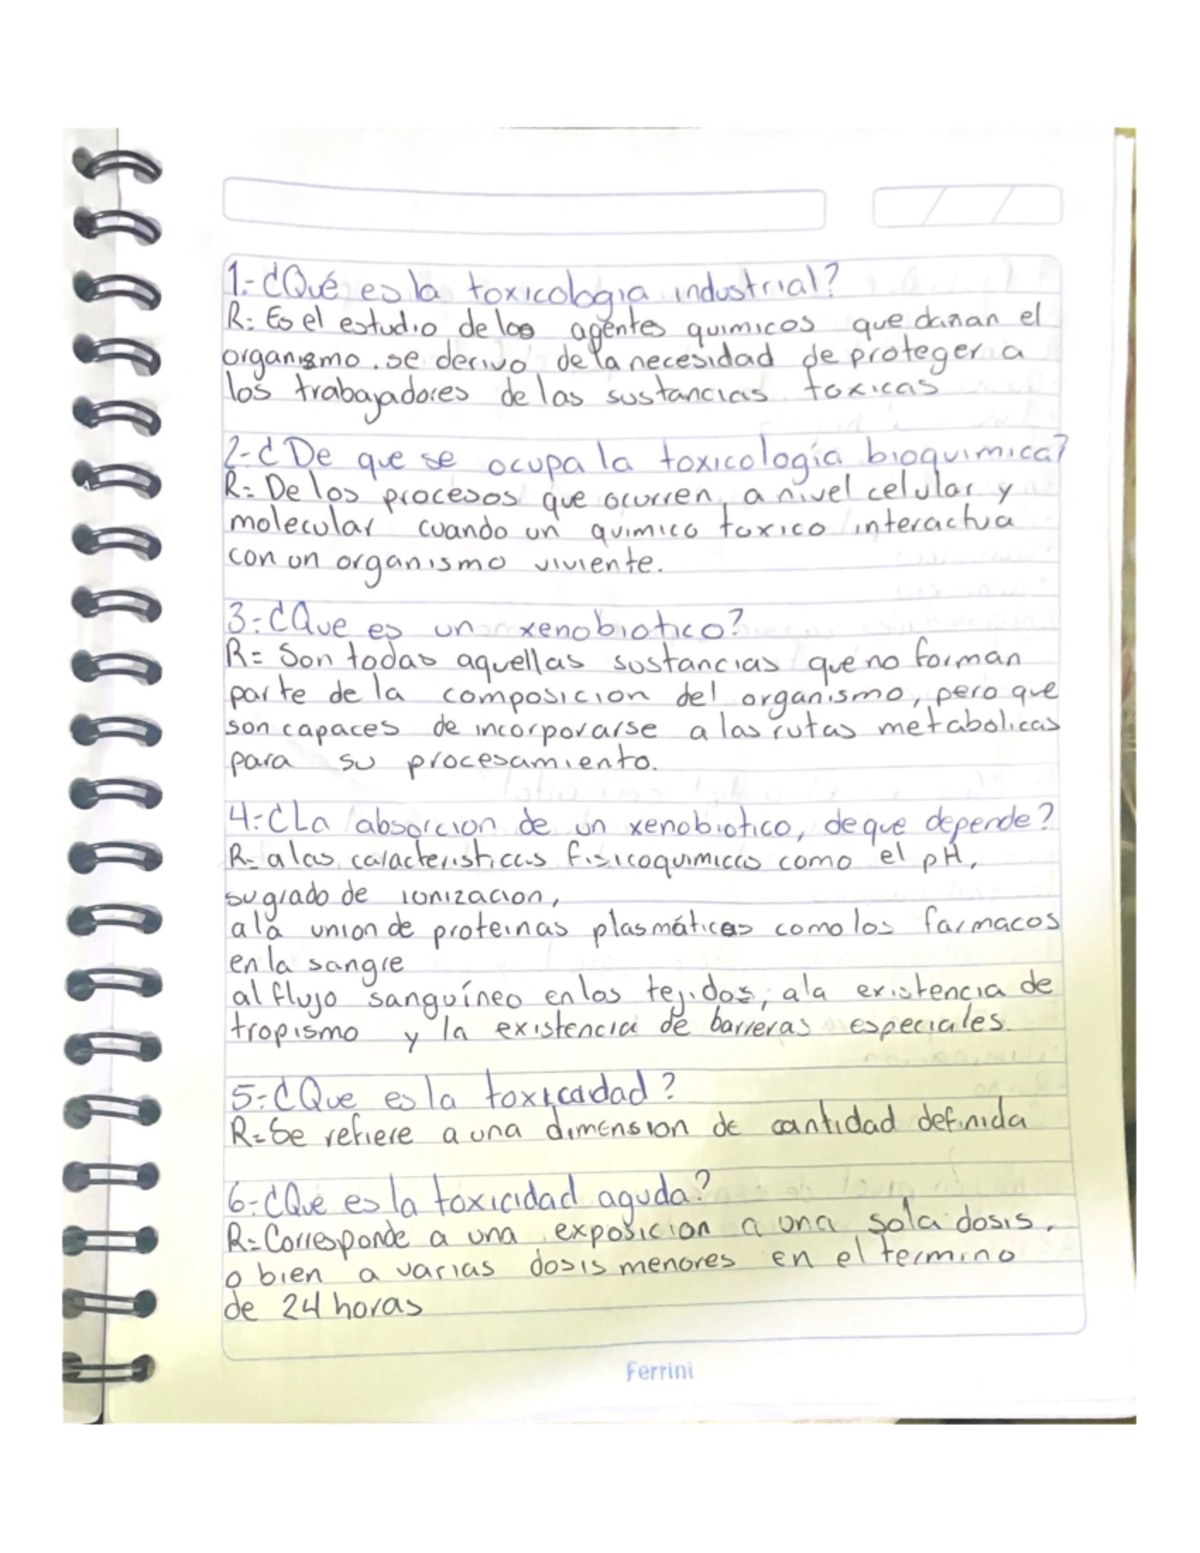 1.- ¿Qué es la toxicologia industrial?
R: Es el estudio de los agentes quimicos que dañan el
organismo. se derivo de la necesidad de proteger a
los trabajadores de las sustancias toxicas
2- ¿De que se ocupa la toxicología bioquimica?
R= De los procesos que ocurren a nivel celular y
molecular cuando un quimico toxico interactua
con un organismo viviente.
3.- ¿Que es un xenobiotico?
R= Son todas aquellas sustancias que no forman
parte de la composicion del organismo, pero que
son capaces de incorporarse a las rutas metabolicas
para su procesamiento.
4.- ¿La absorcion de un xenobiotico, de que depende?
R- a las caracteristicas fisicoquimicas como el pH,
su grado de ionizacion,
a la union de proteinas plasmáticas como los farmacos
en la sangre
al flujo sanguíneo en los tejidos, a la existencia de
tropismo y la existencia de barreras especiales.
5.- ¿Que es la toxicadad?
R= Se refiere a una dimension de cantidad definida
6.- ¿Que es la toxicidad aguda?
R= Corresponde a una exposicion a una sola dosis,
o bien a varias dosis menores en el termino
de 24 horas
Ferrini